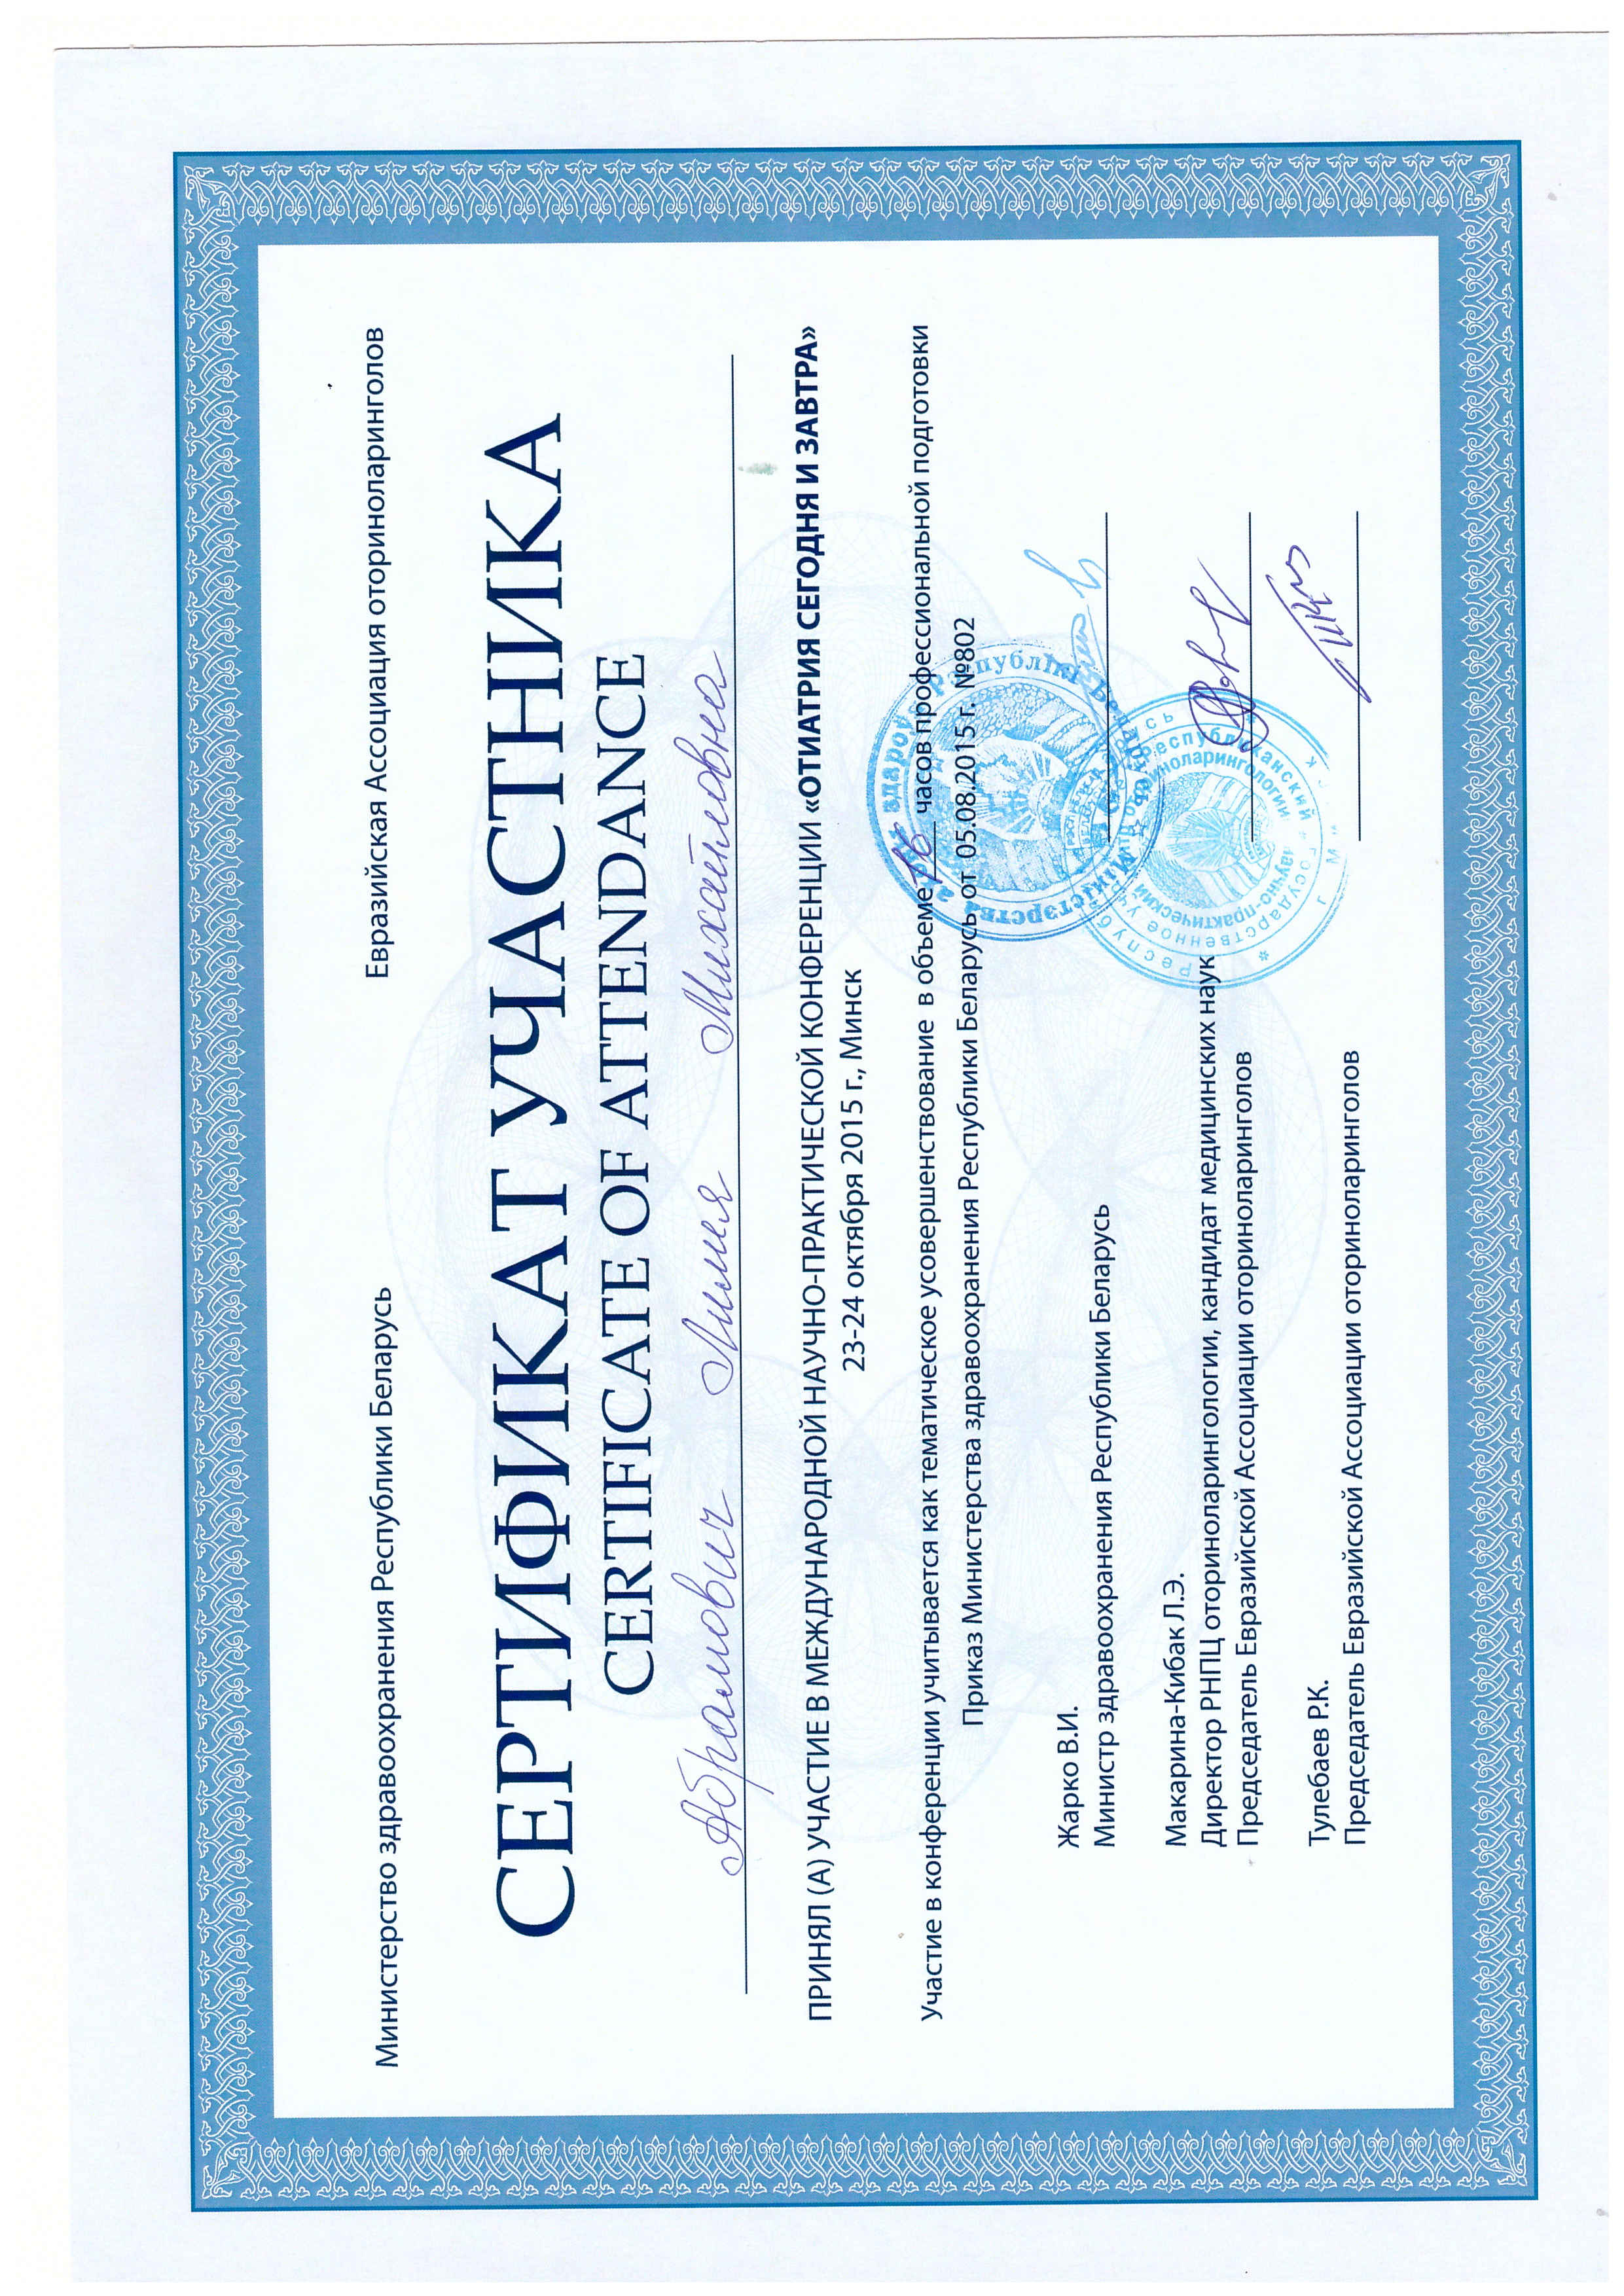 Министерство здравоохранения Республики Беларусь
Евразийская Ассоциация оториноларингологов
СЕРТИФИКАТ УЧАСТНИКА
CERTIFICATE OF ATTENDANCE
Абрамович Лилия Михайловна
ПРИНЯЛ (А) УЧАСТИЕ В МЕЖДУНАРОДНОЙ НАУЧНО-ПРАКТИЧЕСКОЙ КОНФЕРЕНЦИИ «ОТИАТРИЯ СЕГОДНЯ И ЗАВТРА»
23-24 октября 2015 г., Минск
Участие в конференции учитывается как тематическое усовершенствование в объеме 16 часов профессиональной подготовки
Приказ Министерства здравоохранения Республики Беларусь от 05.08.2015 г. №802
Жарко В.И.
Министр здравоохранения Республики Беларусь
Макарина-Кибак Л.Э.
Директор РНПЦ оториноларингологии, кандидат медицинских наук
Председатель Евразийской Ассоциации оториноларингологов
Тулебаев Р.К.
Председатель Евразийской Ассоциации оториноларингологов